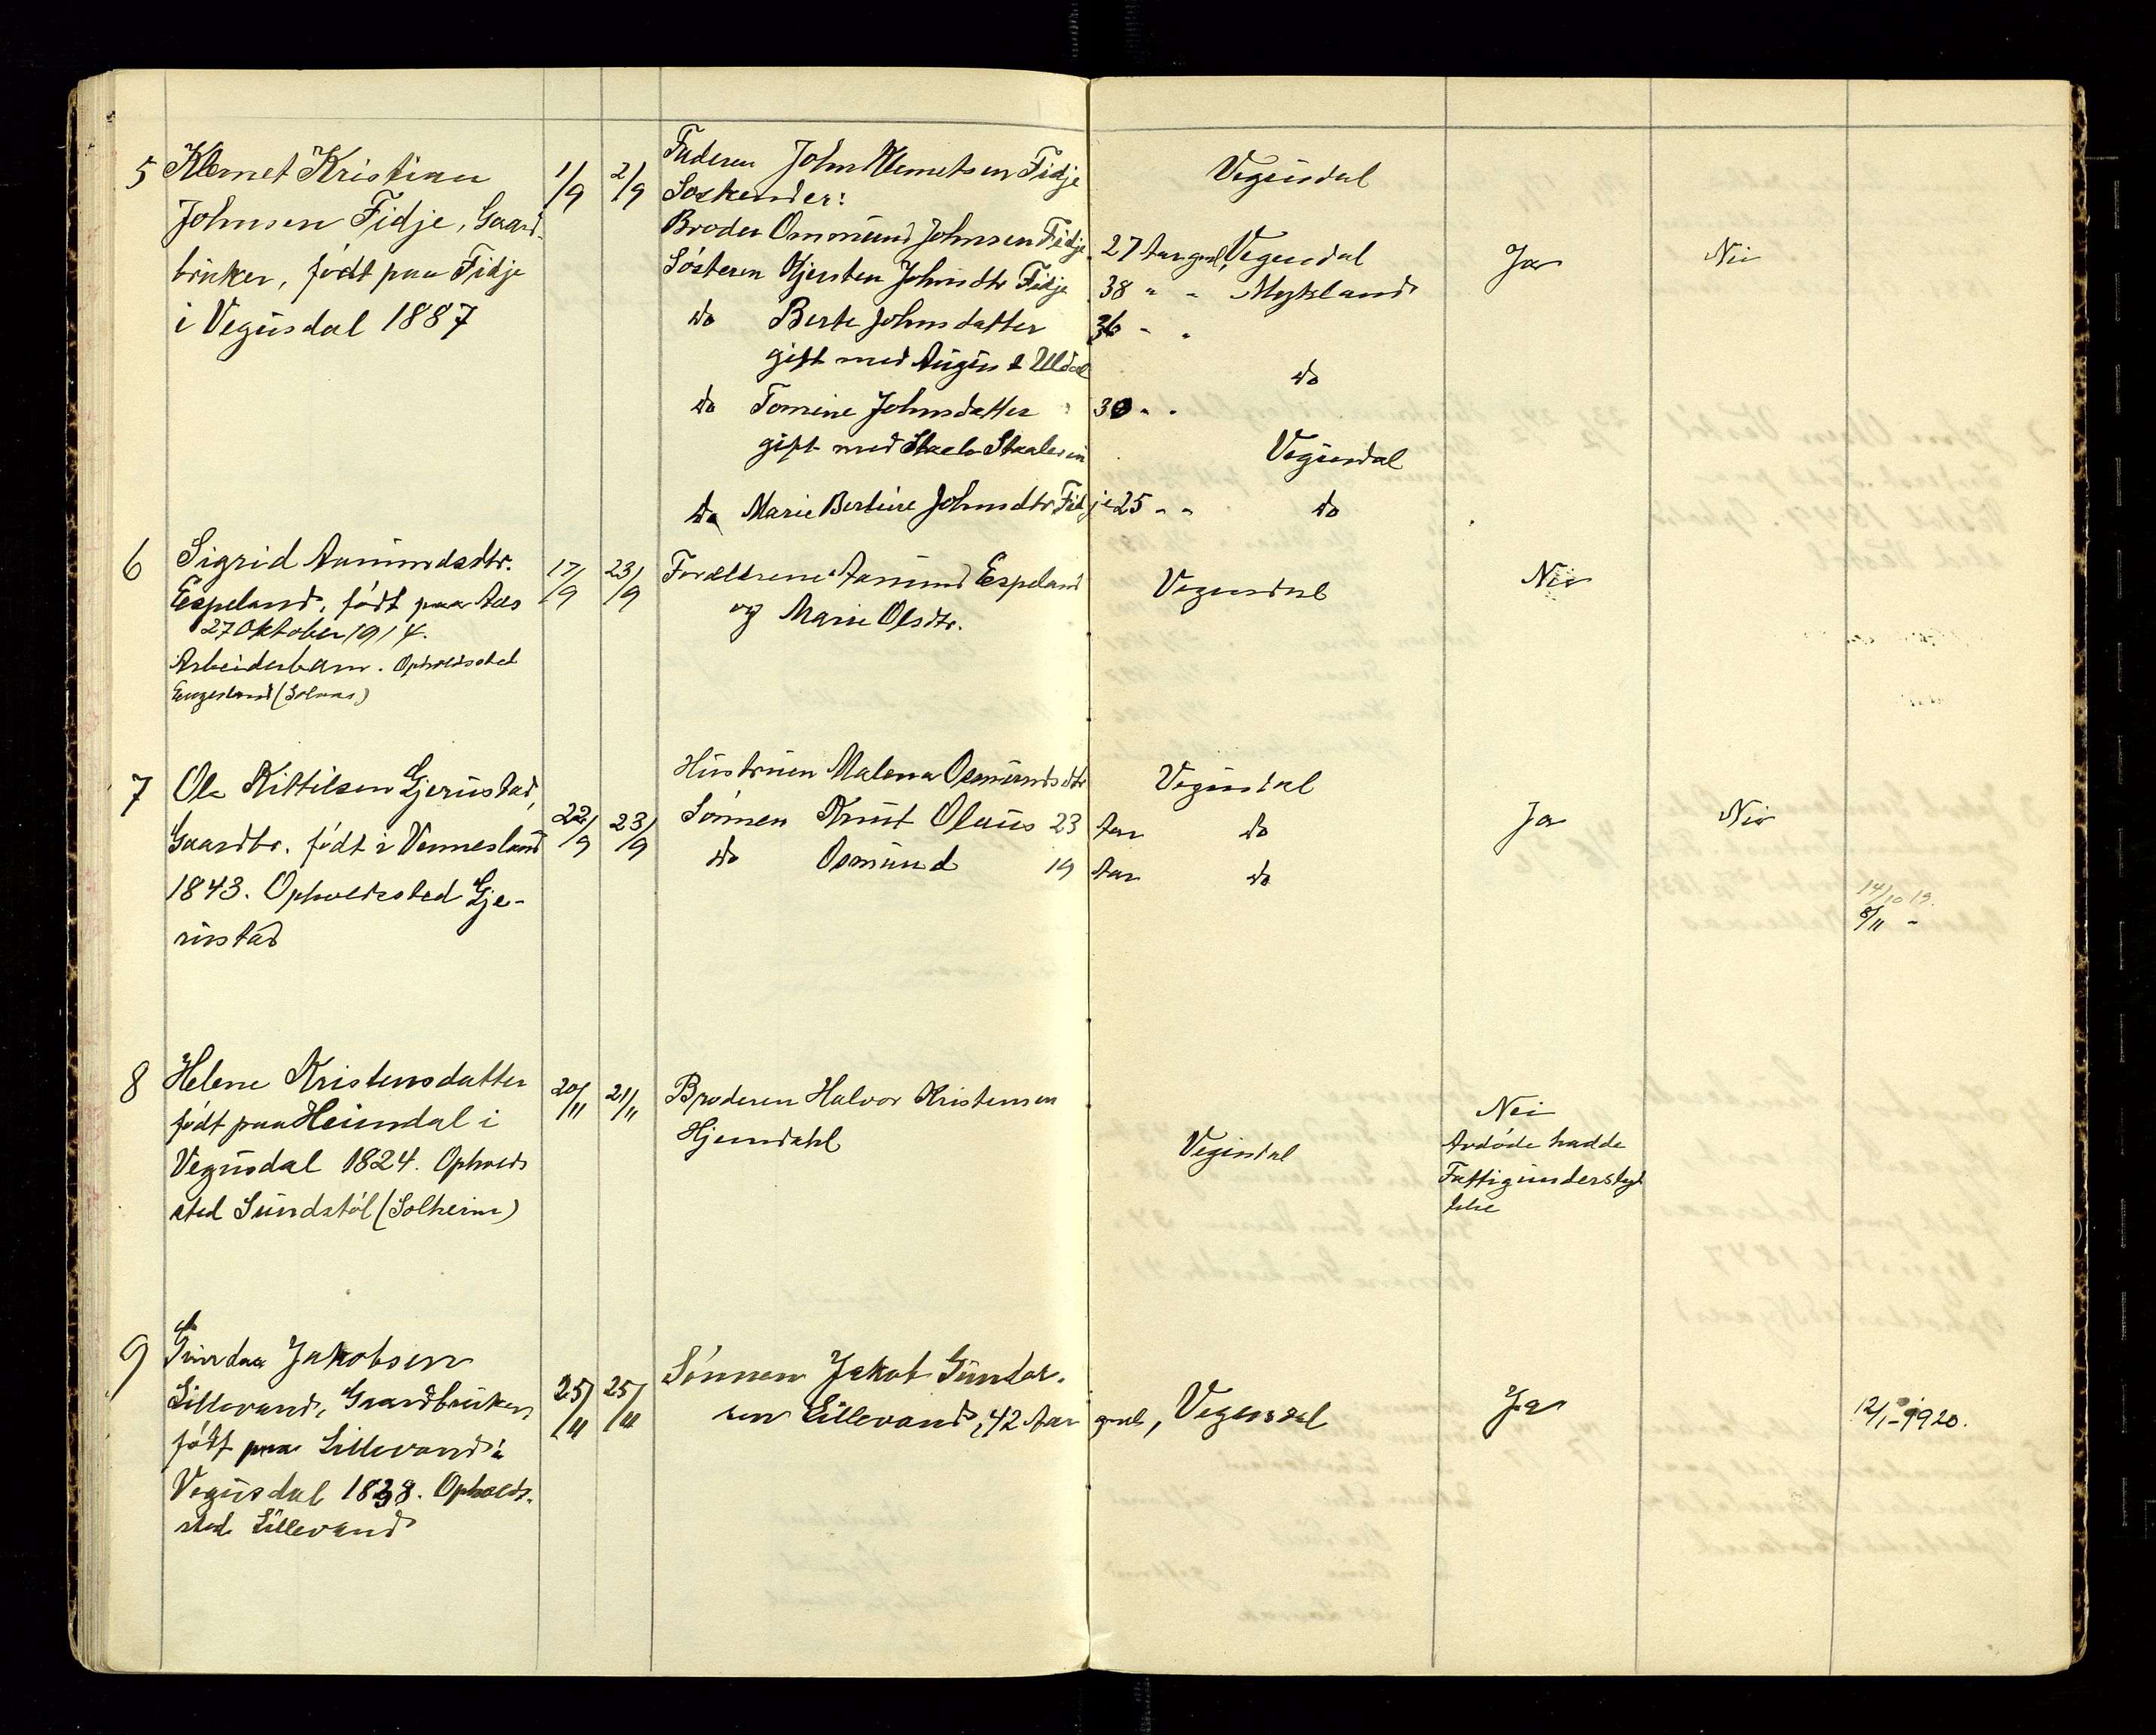 5 Klemet Kristian
Johnsen Fidje, Gaard-
bruker, født paa Fidje
i Vegusdal 1887
1/9 2/9
Faderen John Klemetsen Fidje Vegusdal
Søskender:
Broder Ommund Johnsen Fidje 27 Aar gml, Vegusdal Ja Nei
Søsteren Kjersten Johnsdtr Fidje 38 " " Mykland
do Berte Johnsdatter 36 " "
gift med Augun Uldal do
do Tomine Johnsdatter 30 " "
gift med Staale Staalesen Vegusdal
do Marie Bertine Johnsdtr Fidje 25 " " do
6 Sigrid Aanundsdtr.
Espeland, født paa Aas
27 Oktober 1914.
Arbeiderbarn. Opholdssted
Engesland (Solaas)
17/9 23/9
Forældrene Aanund Espeland Vegusdal Nei
og Marie Olsdtr.
7 Ole Kittilsen Gjerustad,
Gaardbr. født i Vennesland
1843. Opholdssted Gje-
rustad
22/9 23/9
Hustruen Malena Osmundsdtr Vegusdal
Sønnen Knut Olaus 23 Aar do Ja Nei
do Osmund 19 Aar do
14/10 19.
8/11 -
8 Helene Kristensdatter
født paa Heimdal i
Vegusdal 1824. Opholds
sted Sundstøl (Solheim)
20/11 21/11
Broderen Halvor Kristensen
Hjemdahl Vegusdal
Nei
Avdøde hadde
Fattigunderstøt
telse
9 Gundar Jakobsen
Lillevand, Gaardbruker,
født paa Lillevand i
Vegusdal 1838. Opholds-
sted Lillevand
25/11 25/11
Sønnen Jakob Gundar-
sen Lillevand, 42 Aar gml, Vegusdal Ja 12/1-1920.